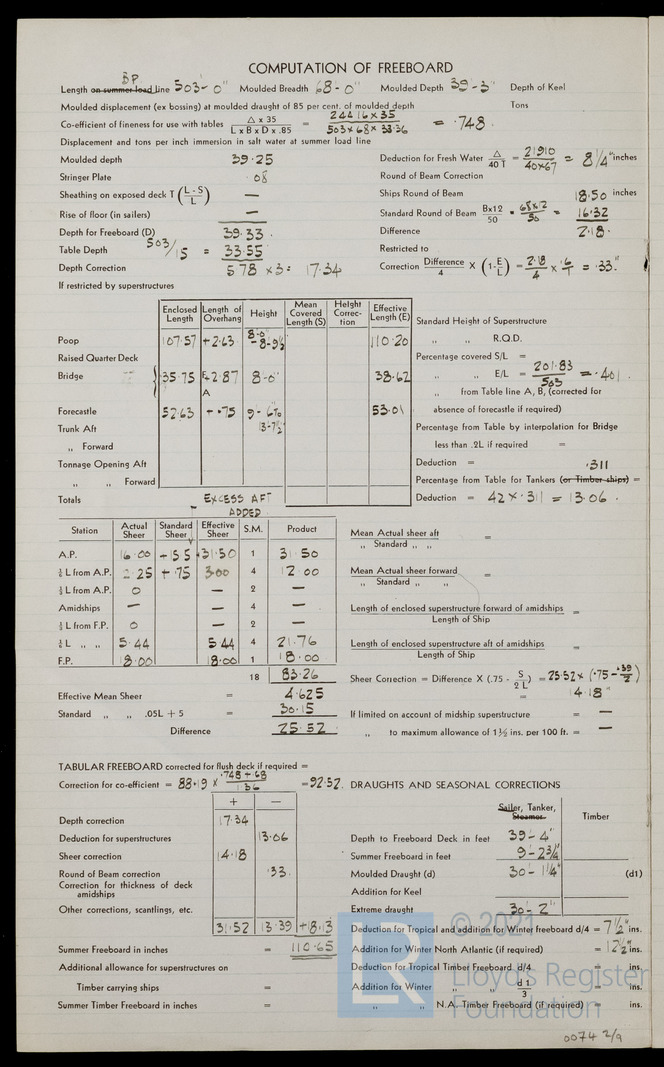 COMPUTATION OF FREEBOARD
B.P.
Length on summer load line 503'- 0" Moulded Breadth 68 - 0" Moulded Depth 39 - 3" Depth of Keel
Moulded displacement (ex bossing) at moulded draught of 85 per cent. of moulded depth Tons
Co-efficient of fineness for use with tables Δ x 35 / L x B x D x .85 = 24416 x 35 / 503 x 68 x 33.36 = .748
Displacement and tons per inch immersion in salt water at summer load line
Moulded depth 39.25 Deduction for Fresh Water Δ / 40 T = 21910 / 40x67 = 8 1/4" inches
Stringer Plate .08 Round of Beam Correction
Sheathing on exposed deck T (L - S / L) — Ships Round of Beam 18.50 inches
Rise of floor (in sailers) — Standard Round of Beam Bx12 / 50 = 68x12 / 50 = 16.32
Depth for Freeboard (D) 39.33 Difference 2.18
Table Depth 503/15 = 33.55 Restricted to
Depth Correction 5.78 x 3 = 17.34 Correction Difference / 4 x (1 - E / L) = 2.18 / 4 x .6 / 1 = .33"
If restricted by superstructures
Enclosed Length Length of Overhang Height Mean Covered Length (S) Height Correction Effective Length (E)
Standard Height of Superstructure
Poop 107.57 +2.63 8-0" 8-9½ 110.20 " " R.Q.D.
Raised Quarter Deck Percentage covered S/L =
Bridge 35.75 F+2.87 A 8-0" 38.62 " " E/L = 201.83 / 503 = .401
" from Table line A, B, (corrected for
Forecastle 52.63 + .75 9 - 6 53.01 absence of forecastle if required)
Trunk Aft 13-7½" Percentage from Table by interpolation for Bridge
" Forward less than .2L if required =
Tonnage Opening Aft Deduction = .311
" " Forward Percentage from Table for Tankers (or Timber ships) =
Totals EXCESS AFT ADDED Deduction = 42 x .311 = 13.06
Station Actual Sheer Standard Sheer Effective Sheer S.M. Product
Mean Actual sheer aft =
" Standard " "
A.P. 16.00 +15.5 +31.50 1 31.50
⅙ L from A.P. 2.25 + .75 3.00 4 12.00 Mean Actual sheer forward =
" Standard " "
⅓ L from A.P. 0 — 2 —
Amidships — — 4 — Length of enclosed superstructure forward of amidships / Length of Ship =
⅓ L from F.P. 0 — 2 —
⅙ L " " 5.44 5.44 4 21.76 Length of enclosed superstructure aft of amidships / Length of Ship =
F.P. 18.00 18.00 1 18.00
18 83.26 Sheer Correction = Difference X (.75 - S / 2L) = 25.52 x (.75 - .39 / 2)
Effective Mean Sheer = 4.625 = 14.18"
Standard " " .05L + 5 = 30.15 If limited on account of midship superstructure = —
Difference 25.52 " to maximum allowance of 1½ ins. per 100 ft. = —
TABULAR FREEBOARD corrected for flush deck if required =
Correction for co-efficient = 88.19 x .748 + .68 / 1.36 = 92.52. DRAUGHTS AND SEASONAL CORRECTIONS
+ — Sailer, Tanker, Steamer Timber
Depth correction 17.34
Deduction for superstructures 13.06 Depth to Freeboard Deck in feet 39'- 4"
Sheer correction 14.18 Summer Freeboard in feet 9'- 2¾"
Round of Beam correction .33 Moulded Draught (d) 30'- 1¼" (d1)
Correction for thickness of deck amidships Addition for Keel
Other corrections, scantlings, etc. Extreme draught 30'- 2"
31.52 13.39 +18.13 Deduction for Tropical and addition for Winter freeboard d/4 = 7½" ins.
Summer Freeboard in inches = 110.65 Addition for Winter North Atlantic (if required) = 12½" ins.
Additional allowance for superstructures on Deduction for Tropical Timber Freeboard d/4 ins.
Timber carrying ships = Addition for Winter " " d1 / 3 = ins.
Summer Timber Freeboard in inches = " " N.A. Timber Freeboard (if required) = ins.
© 2021
LR
Lloyd's Register
Foundation
0074 2/9